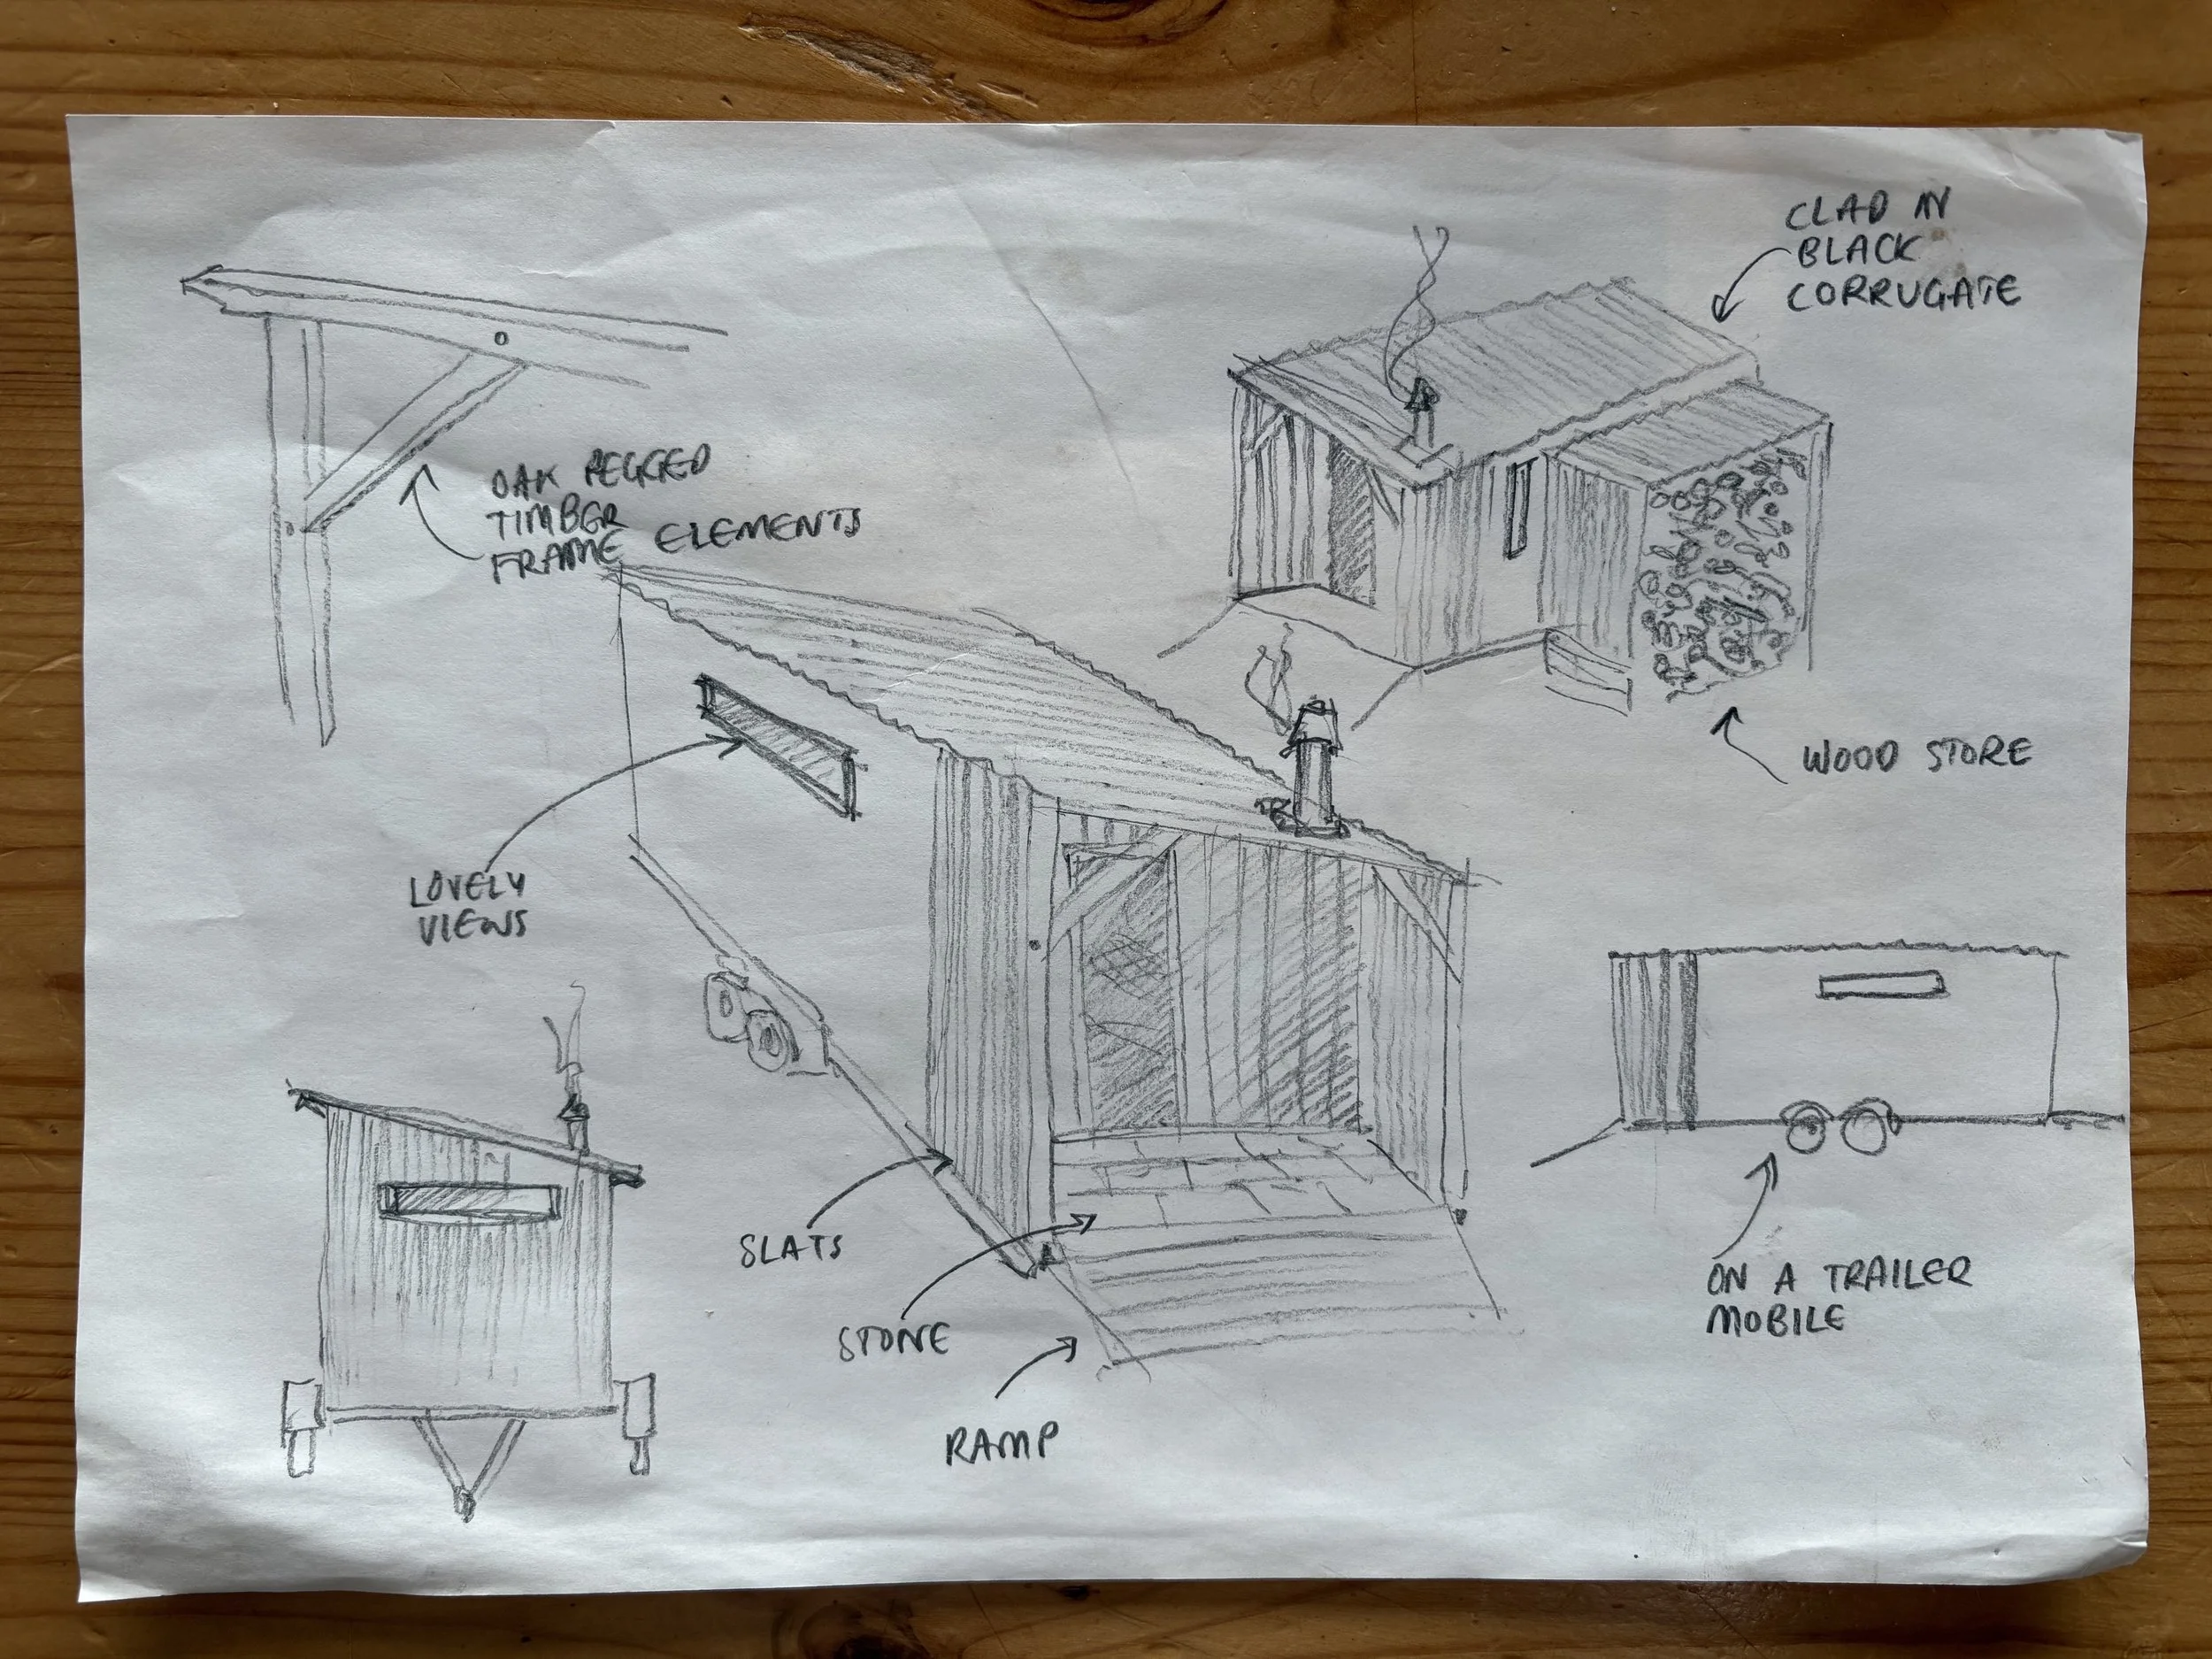 CLAD IN
BLACK
CORRUGATE
OAK PEGGED
TIMBER
FRAME ELEMENTS
WOOD STORE
LOVELY
VIEWS
SLATS
STONE
RAMP
ON A TRAILER
MOBILE